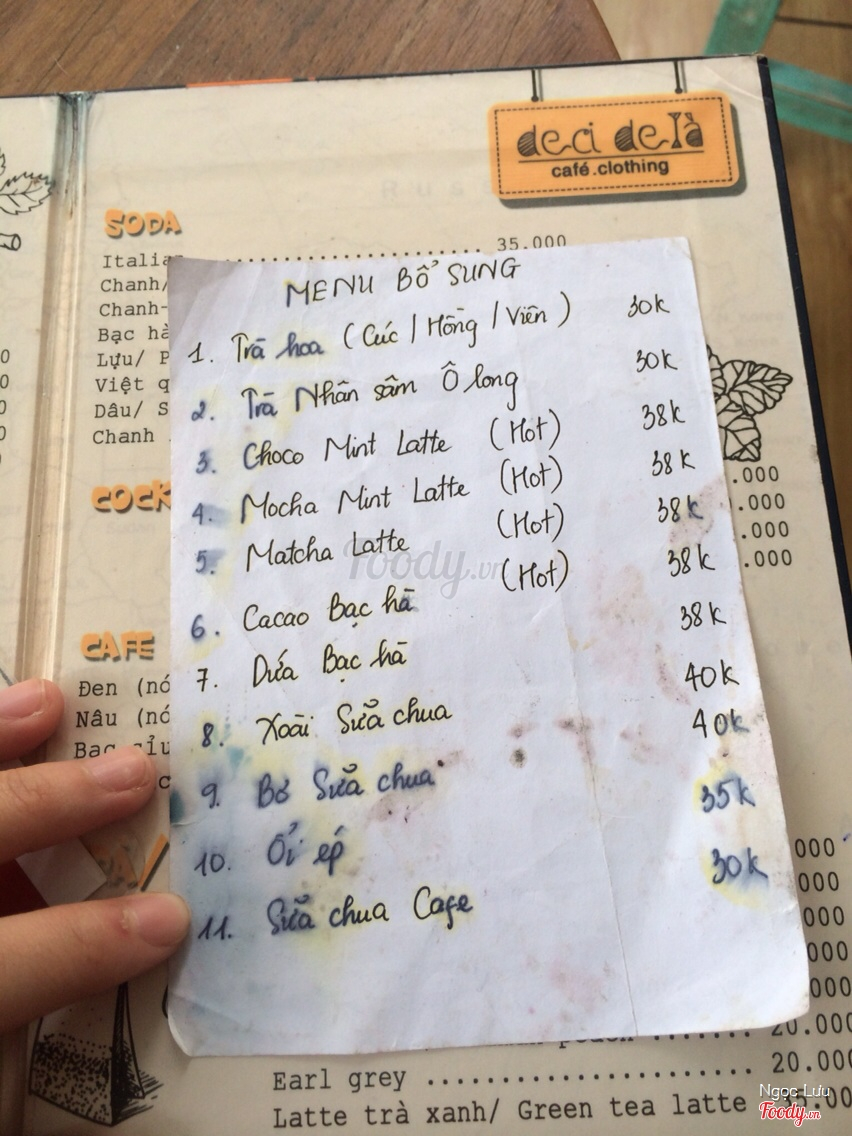 deci delà
café.clothing
SODA
35.000
Chanh/
Chanh-
Bạc hà
Lựu/ P
Việt q
Dâu/ S
Chanh
COCK
.000
.000
.000
.000
CAFE
Đen (nó
Nâu (nó
Bạc sỉu
MENU BỔ SUNG
1. Trà hoa (Cúc / Hồng / Viên) 30k
2. Trà Nhân sâm Ô long 30k
3. Choco Mint Latte (Hot) 38k
4. Mocha Mint Latte (Hot) 38k
5. Matcha Latte (Hot) 38k
6. Cacao Bạc hà (Hot) 38k
7. Dứa Bạc hà 38k
8. Xoài Sữa chua 40k
9. Bơ Sữa chua 40k
10. Ổi ép 35k
11. Sữa chua Cafe 30k
Foody.vn
000
000
000
000
000
20.000
Earl grey 20.000
Latte trà xanh/ Green tea latte 35.00
Ngọc Lưu
Foody.vn